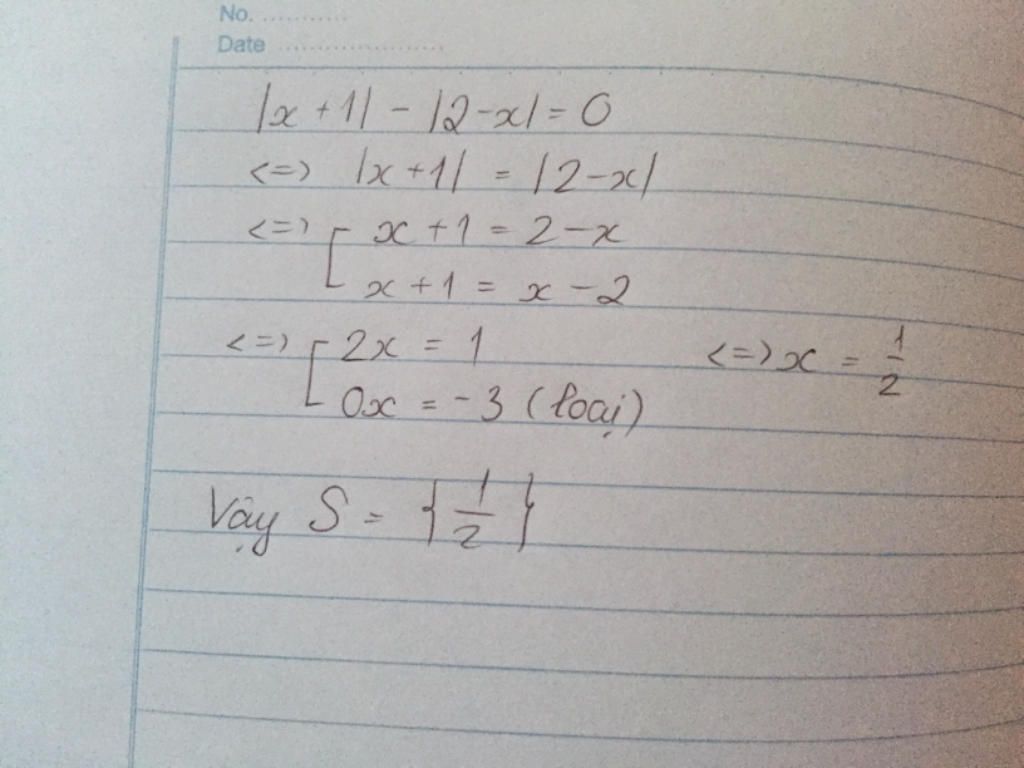 No. ............
Date ........................
|x + 1| - |2 - x| = 0
<=> |x + 1| = |2 - x|
<=> [ x + 1 = 2 - x
x + 1 = x - 2
<=> [ 2x = 1 <=> x = 1/2
0x = -3 (loại)
Vậy S = {1/2}